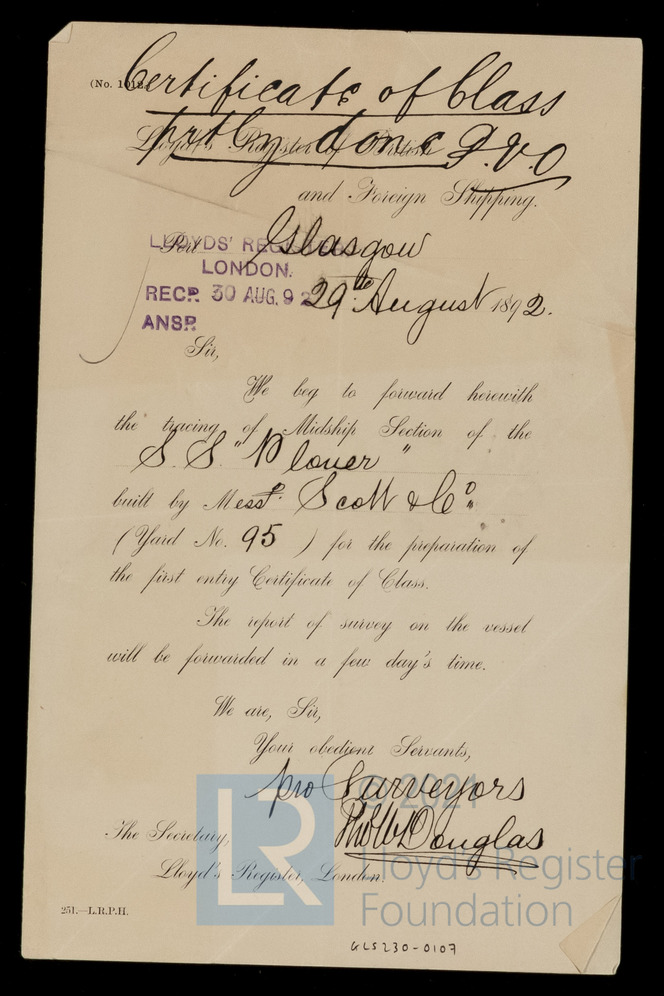 (No. 1019.)
Certificate of Class
prtly done J.V.O
Lloyd's Register of British
and Foreign Shipping.
Port Glasgow
LLOYDS' REGISTER
LONDON.
RECD. 30 AUG. 92
29th August 1892.
ANSD.
Sir,
We beg to forward herewith
the tracing of Midship Section of the
S.S. "Plover"
built by Messrs. Scott & Co.
(Yard No. 95 ) for the preparation of
the first entry Certificate of Class.
The report of survey on the vessel
will be forwarded in a few day's time.
We are, Sir,
Your obedient Servants,
pro Surveyors
Douglas
The Secretary,
Lloyd's Register, London.
251.—L.R.P.H.
LR
© 2021
Lloyd's Register
Foundation
GLS230-0107